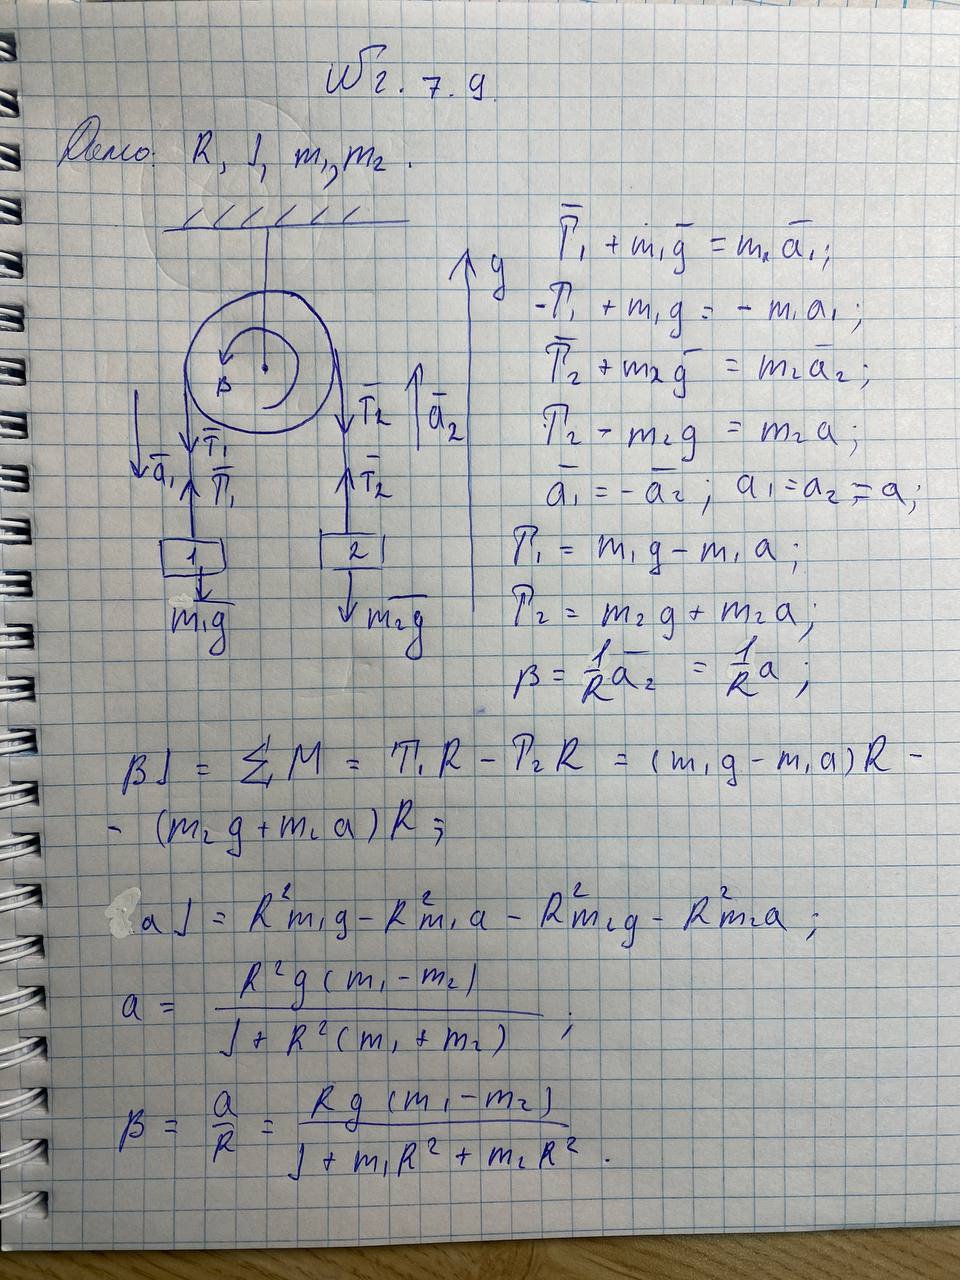 №2.7.9.
Дано: R, J, m₁, m₂.
y
β
T̄₁
T̄₁
T̄₂
T̄₂
ā₁
ā₂
1
2
m₁ḡ
m₂ḡ
T̄₁ + m₁ḡ = m₁ā₁;
-T₁ + m₁g = - m₁a₁;
T̄₂ + m₂ḡ = m₂ā₂;
T₂ - m₂g = m₂a;
ā₁ = -ā₂; a₁ = a₂ = a;
T₁ = m₁g - m₁a;
T₂ = m₂g + m₂a;
β = 1/R ā₂ = 1/R a;
βJ = ΣM = T₁R - T₂R = (m₁g - m₁a)R -
- (m₂g + m₂a)R;
aJ = R²m₁g - R²m₁a - R²m₂g - R²m₂a;
a = R²g(m₁ - m₂) / J + R²(m₁ + m₂);
β = a/R = Rg(m₁ - m₂) / J + m₁R² + m₂R².